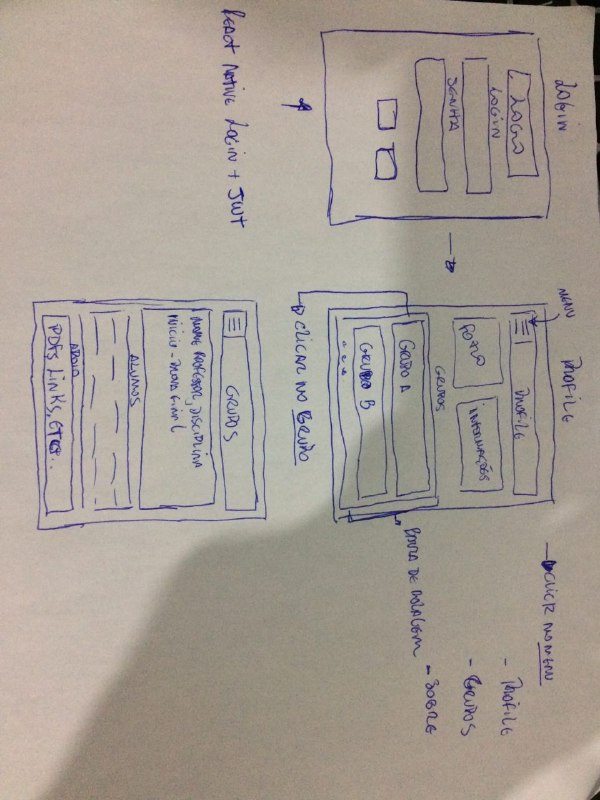 LOGIN
LOGO
LOGIN
SENHA
REACT NATIVE LOGIN + JWT
PROFILE
MENU
PROFILE
FOTO
INFORMAÇÕES
GRUPOS
GRUPO A
GRUPO B
CLICAR NO GRUPO
BARRA DE ROLAGEM
CLICK NO MENU
- PROFILE
- GRUPOS
- SOBRE
GRUPOS
NOME PROFESSOR, DISCIPLINA
INICIO -
ALUNOS
APOIO
PDFS, LINKS, ETC...